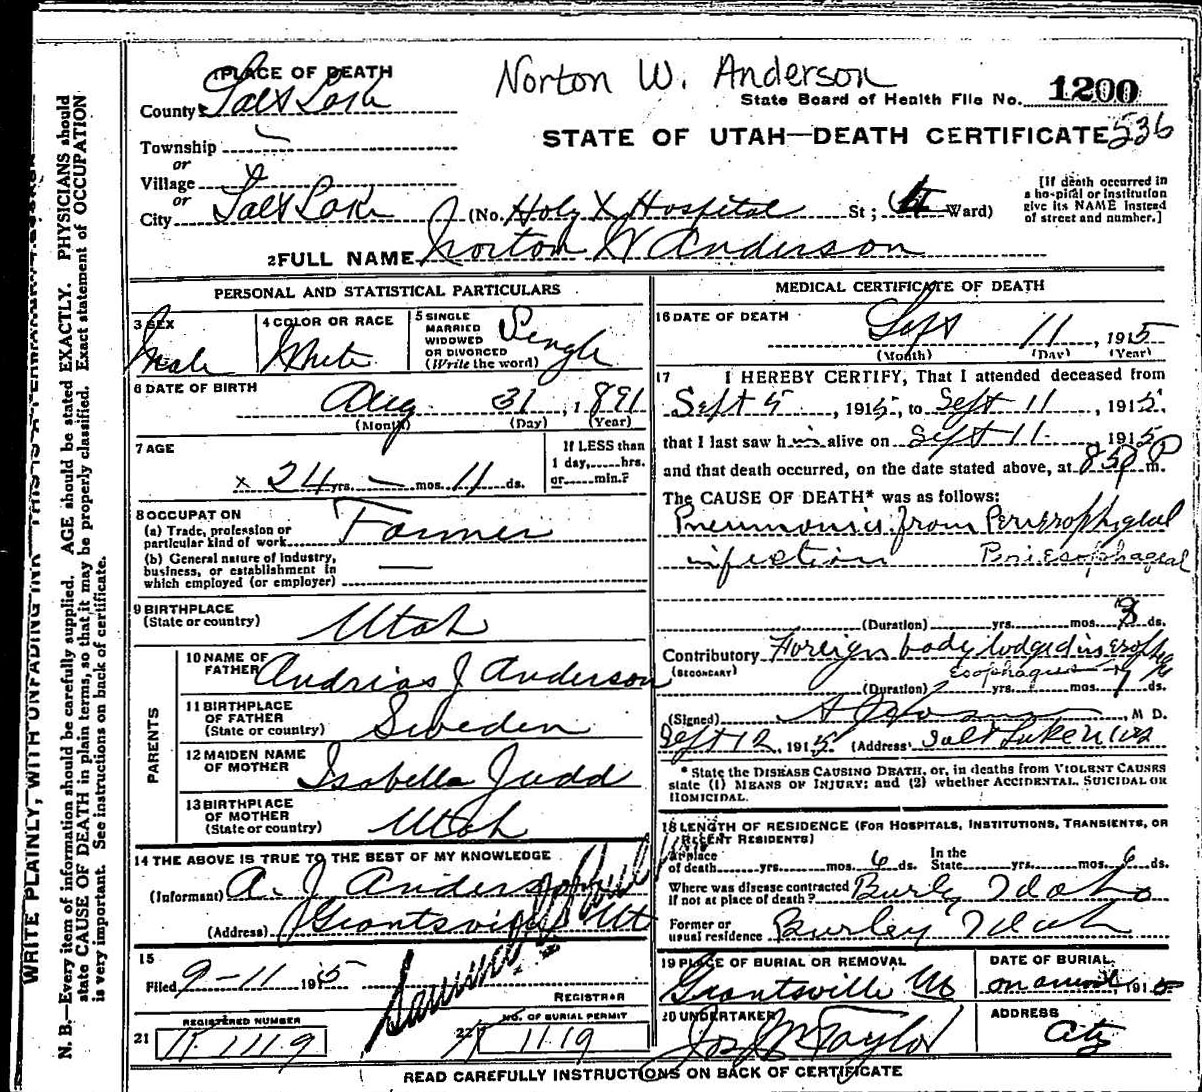 Norton W. Anderson
1 PLACE OF DEATH
County Salt Lake
State Board of Health File No. 1200
Township
STATE OF UTAH—DEATH CERTIFICATE 536
or
Village
or
City Salt Lake (No. Holy X Hospital St; Ward)
[If death occurred in a hospital or institution give its NAME instead of street and number.]
2 FULL NAME Norton W Anderson
PERSONAL AND STATISTICAL PARTICULARS
3 SEX Male
4 COLOR OR RACE White
5 SINGLE MARRIED WIDOWED OR DIVORCED (Write the word) Single
6 DATE OF BIRTH
Aug 31, 1891
(Month) (Day) (Year)
7 AGE
24 yrs. — mos. 11 ds.
If LESS than 1 day,......hrs. or......min.?
8 OCCUPATION
(a) Trade, profession or particular kind of work Farmer
(b) General nature of industry, business, or establishment in which employed (or employer) —
9 BIRTHPLACE
(State or country) Utah
PARENTS
10 NAME OF FATHER Andrias J Anderson
11 BIRTHPLACE OF FATHER (State or country) Sweden
12 MAIDEN NAME OF MOTHER Isabella Judd
13 BIRTHPLACE OF MOTHER (State or country) Utah
14 THE ABOVE IS TRUE TO THE BEST OF MY KNOWLEDGE
(Informant) A. J. Anderson
(Address) Grantsville Ut
15
Filed 9-11 1915
REGISTRAR
21 REGISTERED NUMBER
1119
22 NO. OF BURIAL PERMIT
1119
MEDICAL CERTIFICATE OF DEATH
16 DATE OF DEATH
Sept 11, 1915
(Month) (Day) (Year)
17 I HEREBY CERTIFY, That I attended deceased from
Sept 5, 1915, to Sept 11, 1915.
that I last saw him alive on Sept 11 1915
and that death occurred, on the date stated above, at P m.
The CAUSE OF DEATH* was as follows:
Pneumonia from
infection Periesophageal
(Duration) yrs. mos. 3 ds.
Contributory Foreign body lodged in
(SECONDARY) Esophagus
(Duration) yrs. mos. ds.
(Signed) M D.
Sept 12, 1915 (Address) Salt Lake
* State the DISEASE CAUSING DEATH, or, in deaths from VIOLENT CAUSES
state (1) MEANS OF INJURY; and (2) whether ACCIDENTAL, SUICIDAL OR
HOMICIDAL.
18 LENGTH OF RESIDENCE (FOR HOSPITALS, INSTITUTIONS, TRANSIENTS, OR
RECENT RESIDENTS)
At place of death yrs. mos. 6 ds. In the State yrs. mos. 6 ds.
Where was disease contracted
if not at place of death? Burley Idaho
Former or
usual residence Burley Idaho
19 PLACE OF BURIAL OR REMOVAL
Grantsville Ut
DATE OF BURIAL
1915
20 UNDERTAKER
Jos Wm Taylor
ADDRESS
City
READ CAREFULLY INSTRUCTIONS ON BACK OF CERTIFICATE
N. B.—Every item of information should be carefully supplied. AGE should be stated EXACTLY. PHYSICIANS should
state CAUSE OF DEATH in plain terms, so that it may be properly classified. Exact statement of OCCUPATION
is very important. See instructions on back of certificate.